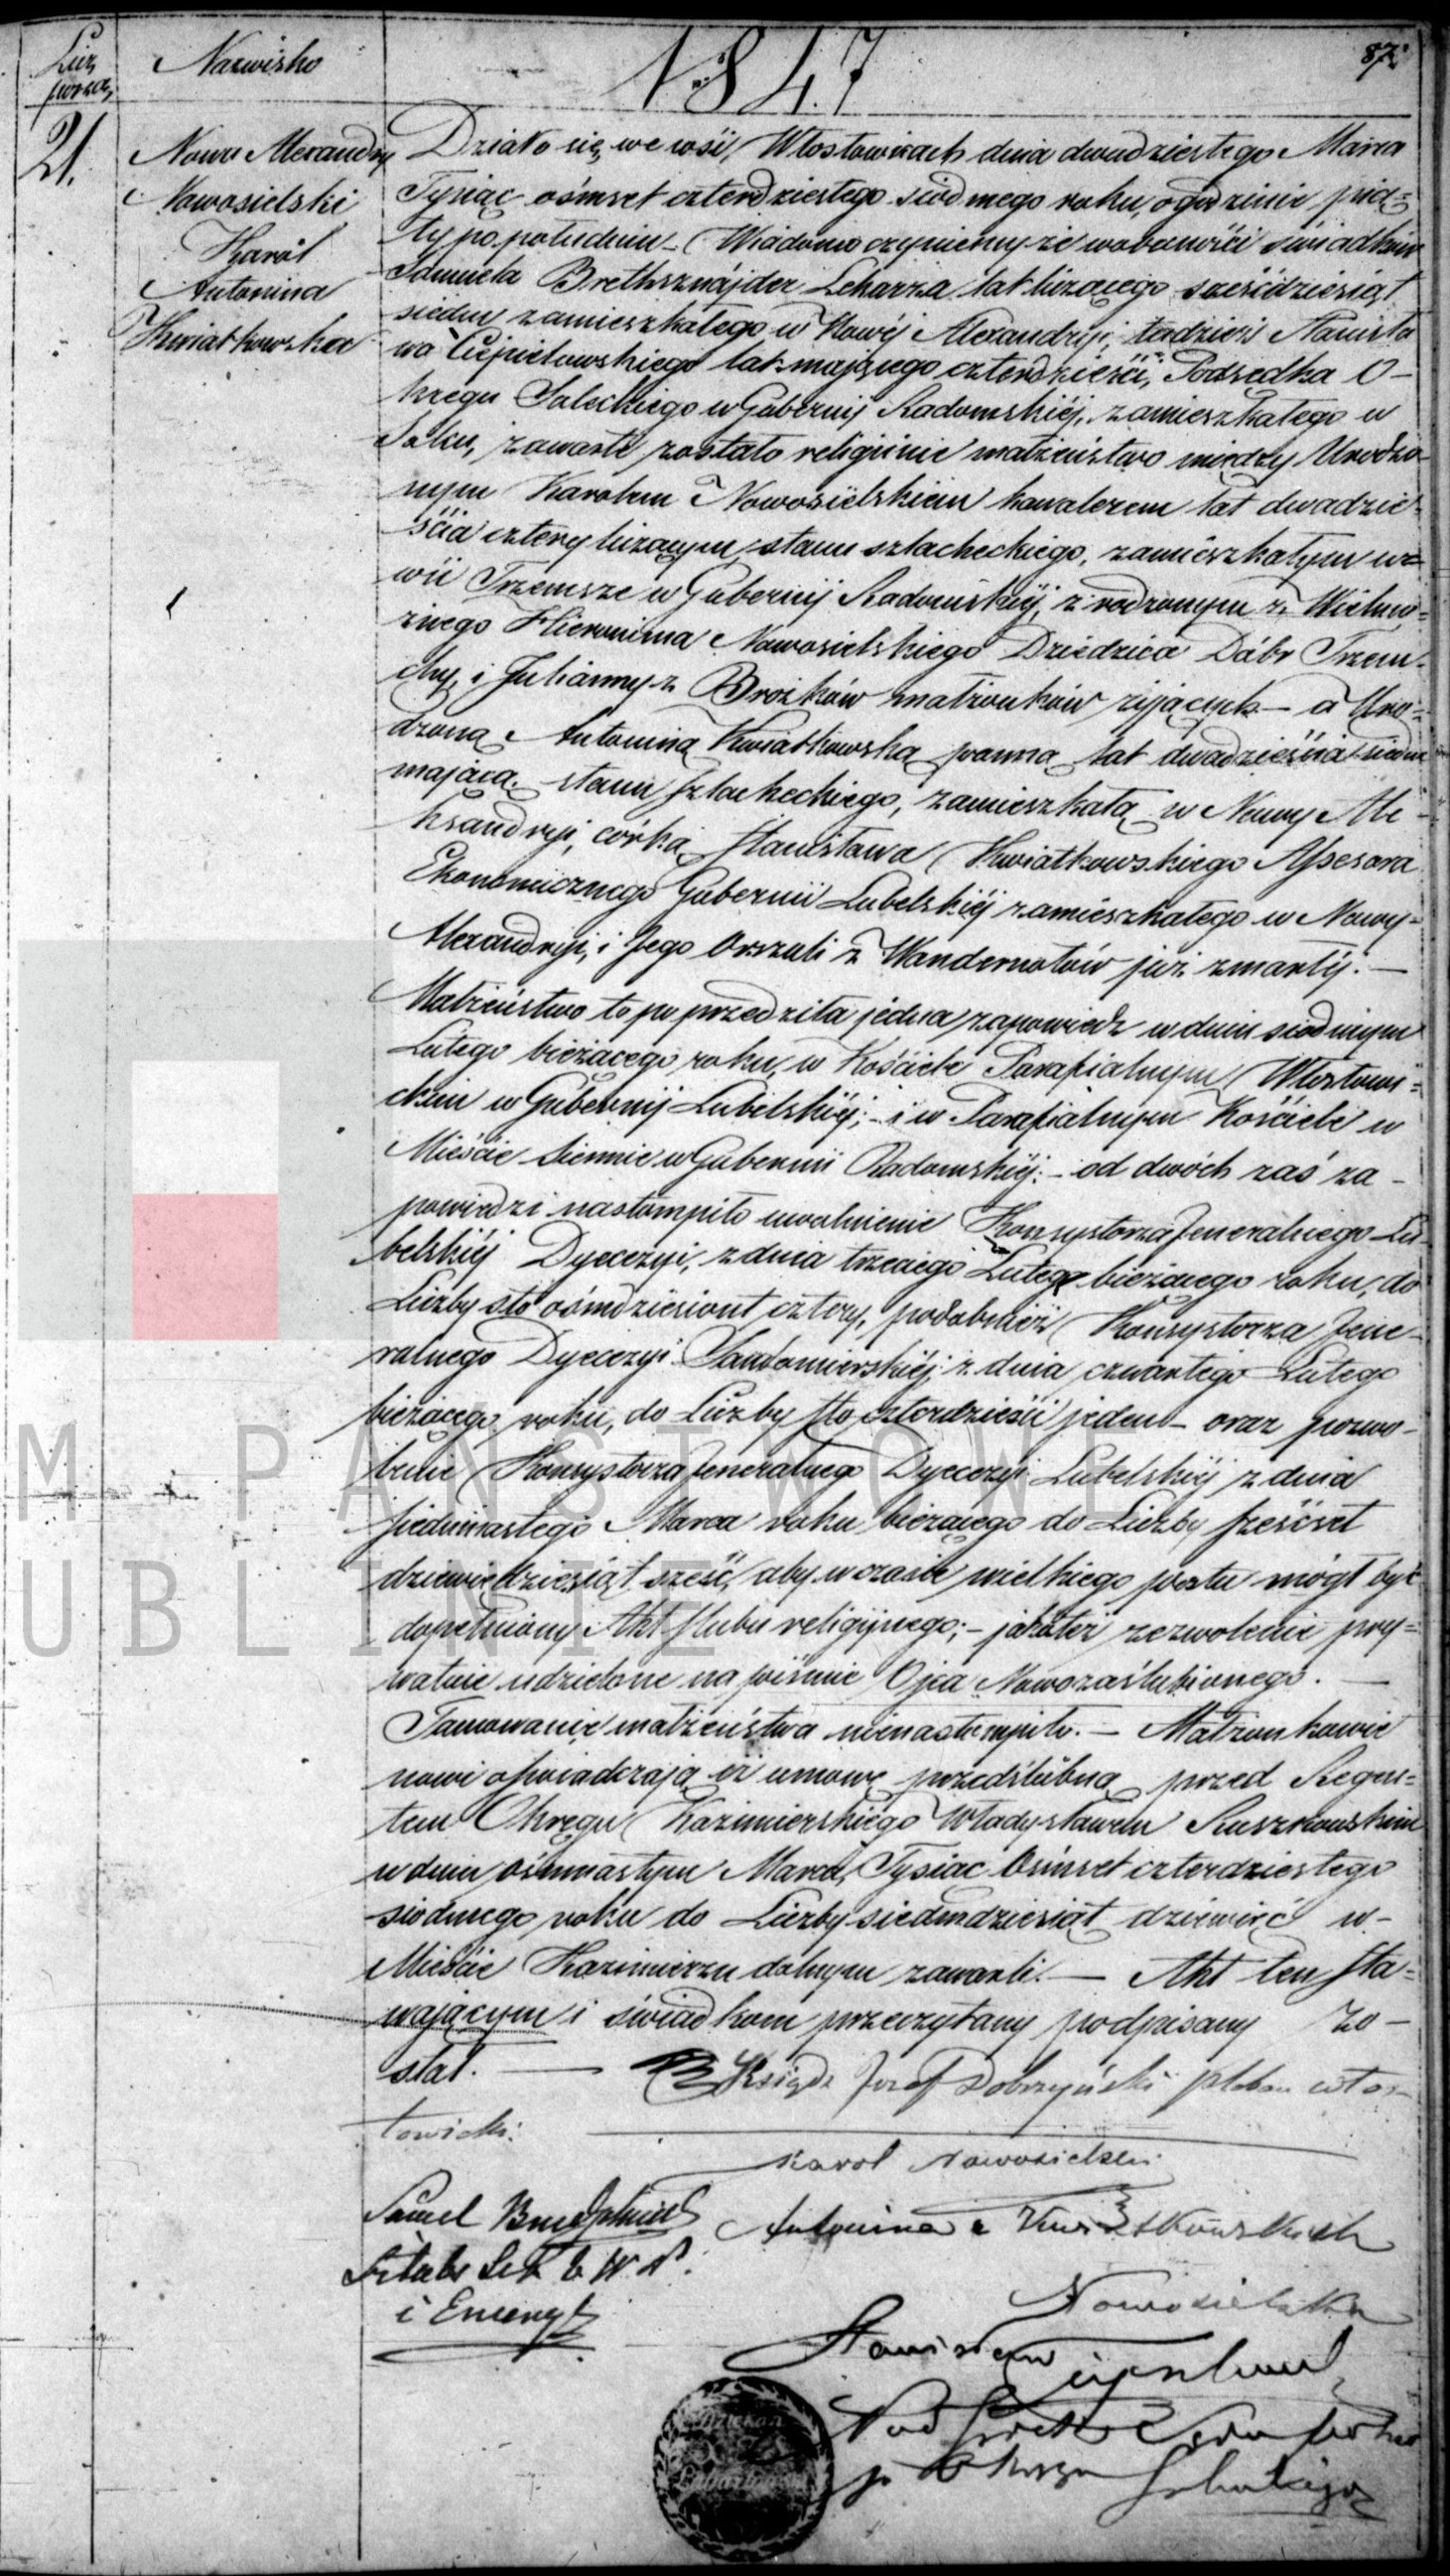 Licz. porząd. Nazwisko 1847 87.
21.
Nowa Alexandry
Nowosielski
Karól
Antonina
Kwiatkowska
Działo się we wsi Włostowicach dnia dwudziestego Marca
Tysiąc ośmset czterdziestego siódmego roku, o godzinie pią=
tej po południu – Wiadomo czyniemy że w obecności świadków
Samuela Brethsznajder Lekarza lat liczącego sześćdziesiąt
siedm zamieszkałego w Nowéj Alexandryi, tudzież Stanisła
wa Ciepielowskiego lat mającego czterdzieści, Podsędka O-
kręgu Soleckiego w Gubernij Radomskiéj, zamieszkałego w
Solcu, zawarte zostało religijnie małżeństwo między Urodzo-
nym Karolem Nowosielskiem kawalerem lat dwadzie-
ścia cztery liczącym, stanu szlacheckiego, zamieszkałym we
wsi Trzemsze w Gubernij Radomskiéj, zrodzonym z Wielmo=
żnego Hieronima Nowosielskiego Dziedzica Dóbr Trzem-
chy, i Julianny z Brożków małżonków żyjących – a Uro=
dzoną Antoniną Kwiatkowską panną lat dwadzieścia siedm
mającą, stanu szlacheckiego, zamieszkałą w Nowy Ale-
ksandryi, córką Stanisława Kwiatkowskiego Assesora
Ekonomicznego Gubernii Lubelskiéj zamieszkałego w Nowy-
Alexandryi, i Jego Orszuli z Wandernotów już zmarłéj. –
Małżeństwo to poprzedziła jedna zapowiedź w dniu siódmym
Lutego bieżącego roku, w Kościele Parafialnym Włostowi=
ckim w Gubernij Lubelskiéj; – i w Parafialnym Kościele w
Mieście Siennie w Gubernii Radomskiéj: – od dwóch zaś za-
powiedzi nastąmpiło uwolnienie Konsystorza Jeneralnego Lu-
belskiéj Dyecezyi, z dnia trzeciego Lutego bieżącego roku, do
Liczby sto ośmdziesiont cztery, podobnież Konsystorza Jene-
ralnego Dyecezyi Sandomierskiéj z dnia czwartego Lutego
bieżącego roku, do Liczby sto czterdzieści jeden – oraz pozwo-
lenie Konsystorza Jeneralnego Dyecezyi Lubelskiéj z dnia
jedenastego Marca roku bieżącego do Liczby sześćset
dziewiędziesiąt sześć, aby w czasie wielkiego postu mógł być
dopełniony Akt ślubu religijnego; – jakotéż zezwolenie pry=
watnie udzielone na piśmie Ojca Nowozaślubionego. –
Tamowanie małżeństwa nienastąmpiło. – Małżonkowie
nowi oświadczają iż umowę przedślubną przed Regen=
tem Okręgu Kazimierskiego Władysławem Ruszkowskim
w dniu ośmnastym Marca Tysiąc Ośmset czterdziestego
siódmego roku do Liczby siedmdziesiąt dziewięć w-
Mieście Kazimierzu dolnym zawarli. – Akt ten sta=
wającym i świadkom przeczytany podpisany zo-
stał. – Ksiądz Józef Dobrzyński pleban włos-
towicki.
Karol Nowosielski
Antonina z Kwiatkowskich
Nowosielska
Samuel
Sztabs Lek. b. W. P.
i Emeryt
Stanisław
Podsędek